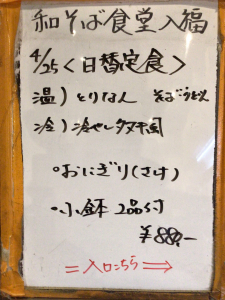 和そば食堂 入福
4/25<日替定食>
温)とりなん そばうどん
冷)冷やしタヌキ
・おにぎり(さけ)
・小鉢 2品付
¥880.-
=入口こちら⇒